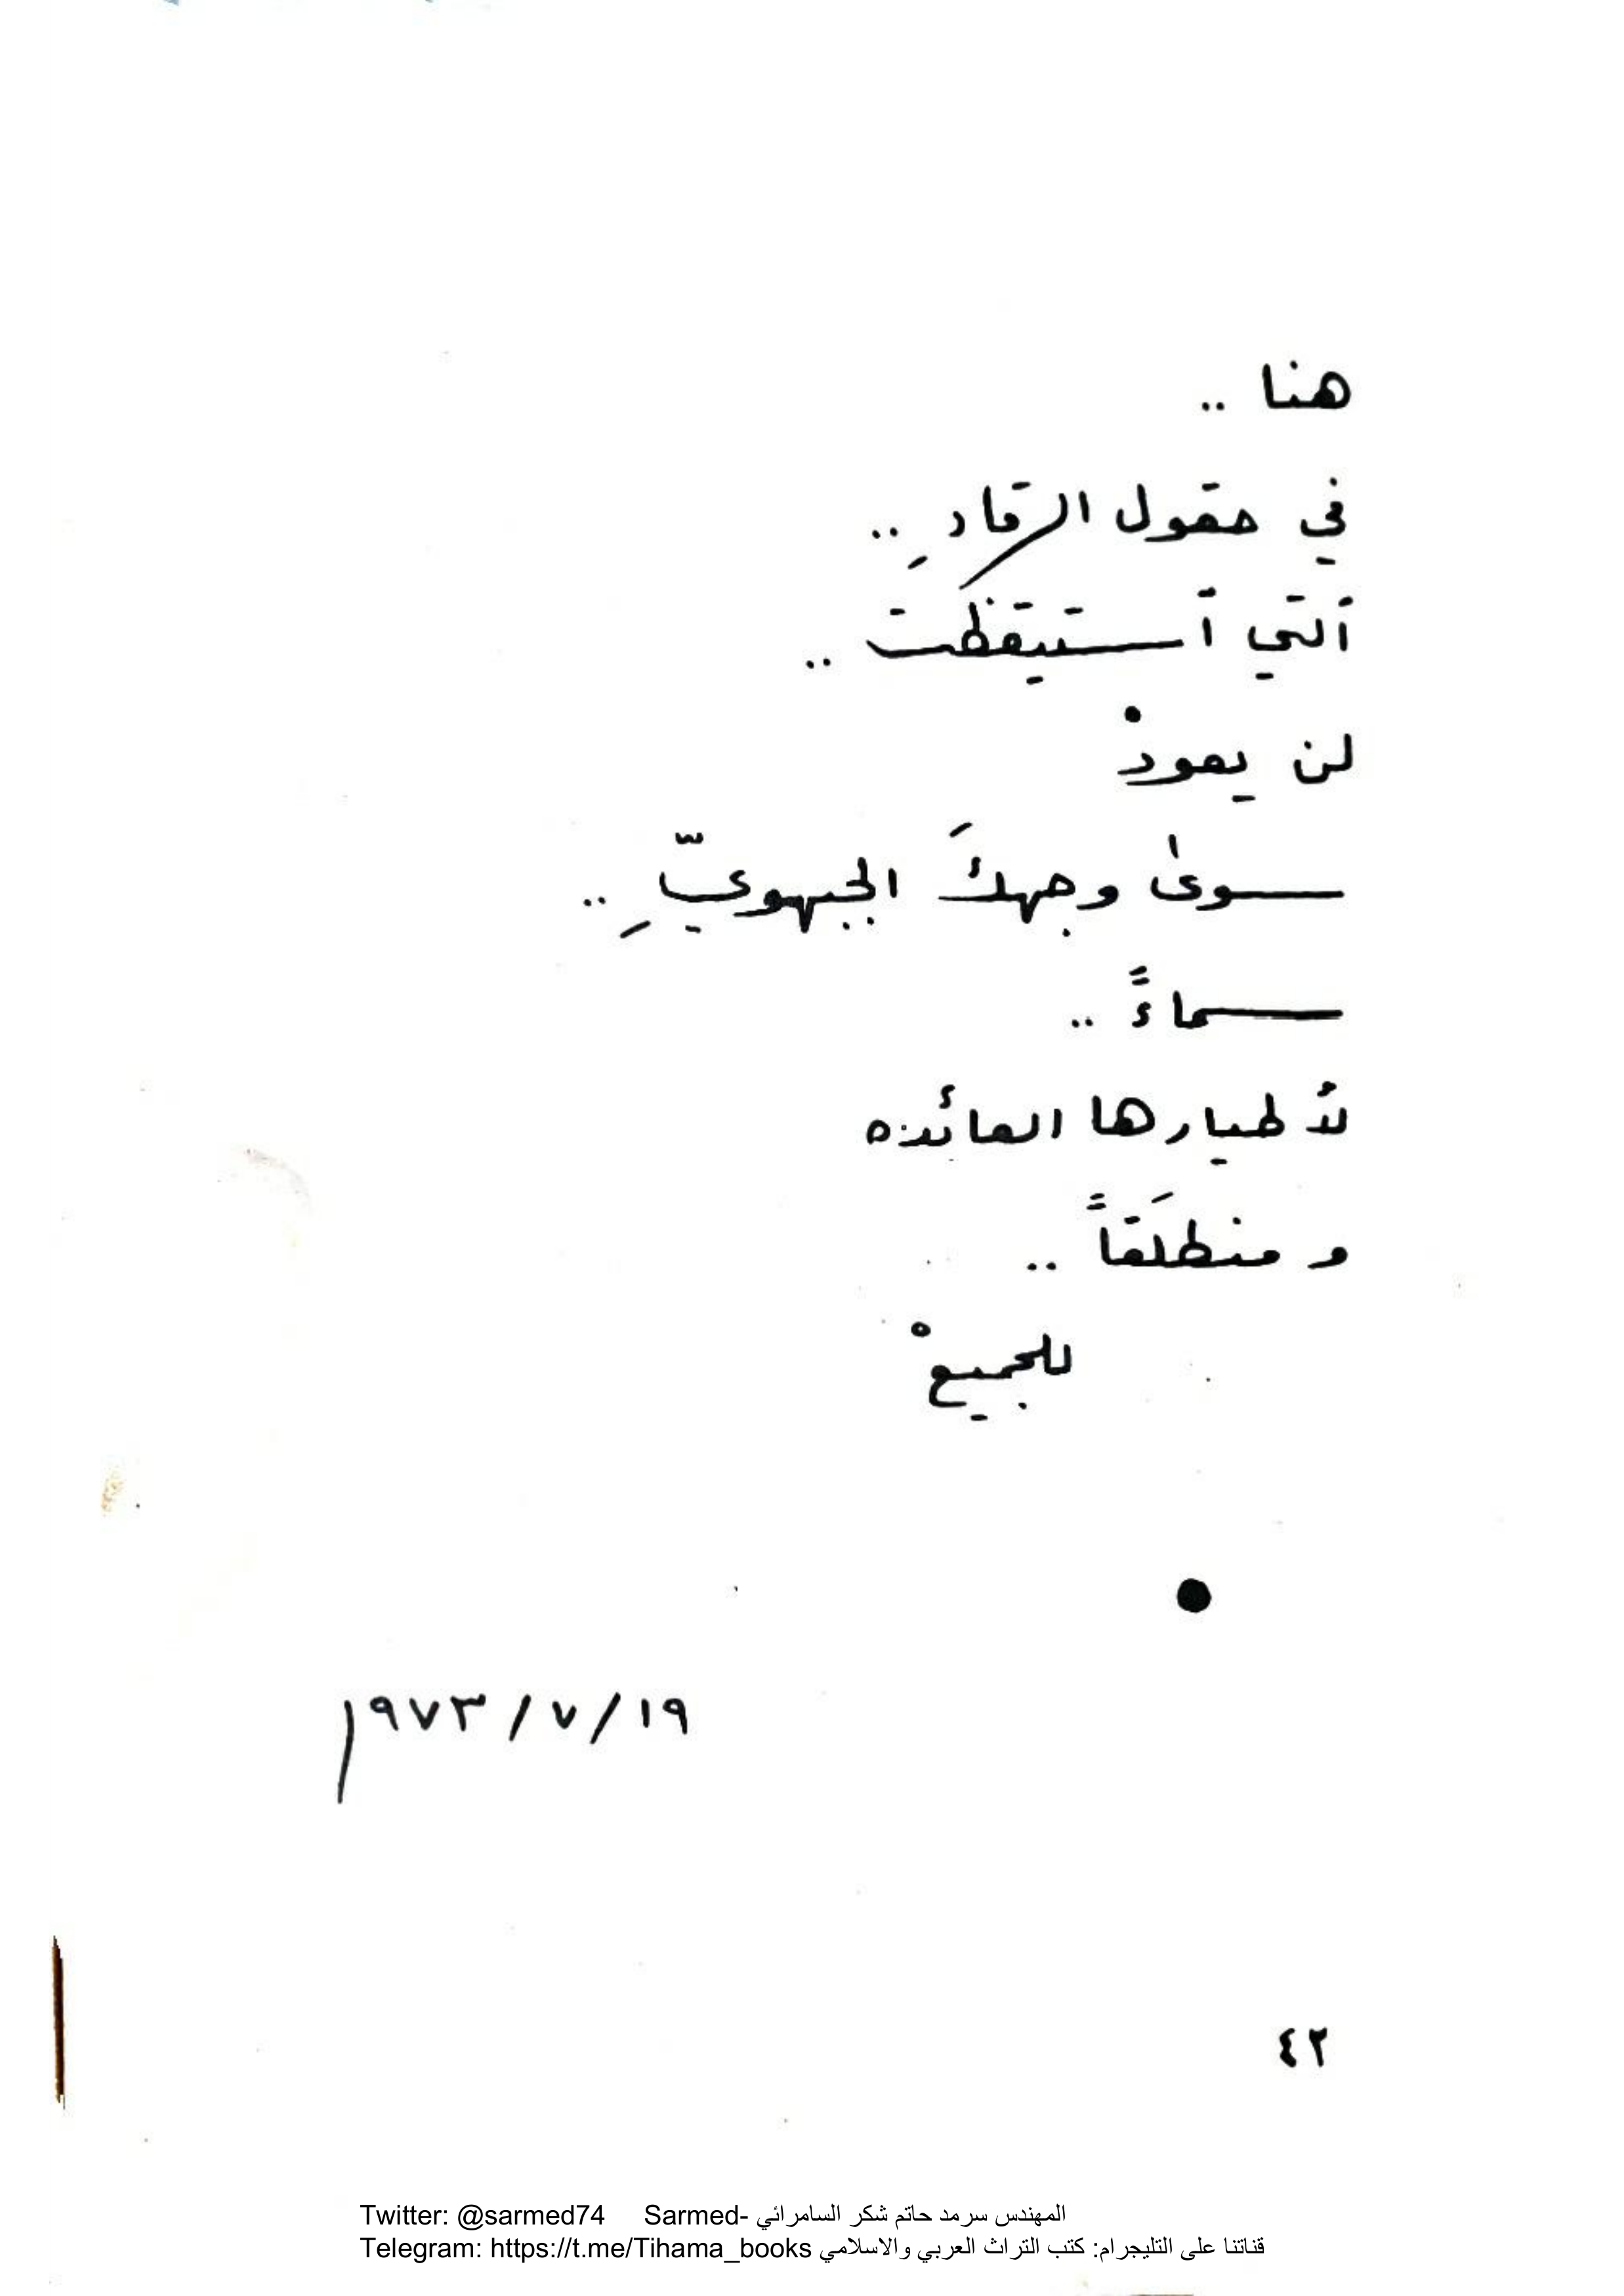 هنا ..
في حقول الرقادِ ..
ألتي أستيقظت ..
لن يعودْ
سوىٰ وجهكَ الجبهويِّ ..
سماءً ..
لأطيارها العائده
و منطلَقاً ..
للجميعْ
١٩ / ٧ / ١٩٧٣
٤٢
Twitter: @sarmed74 Sarmed- المهندس سرمد حاتم شكر السامرائي
Telegram: https://t.me/Tihama_books قناتنا على التليجرام: كتب التراث العربي والاسلامي